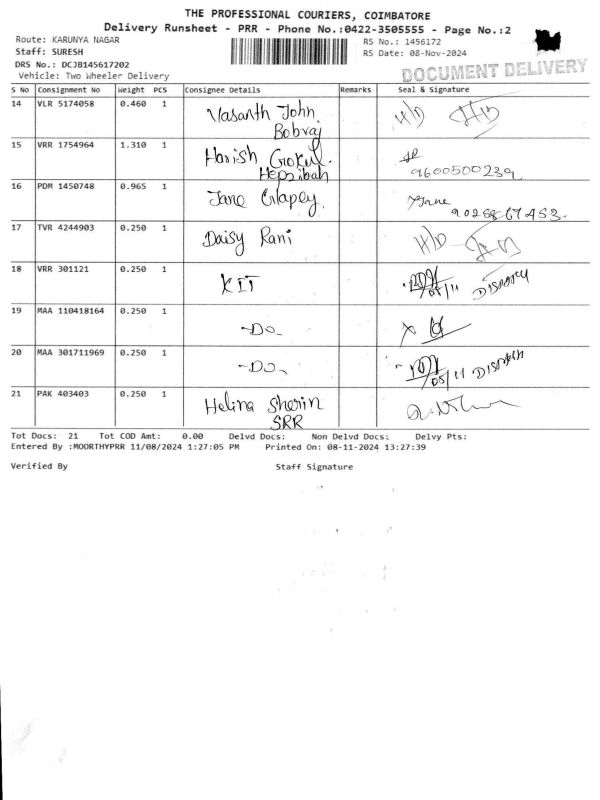 THE PROFESSIONAL COURIERS, COIMBATORE
Delivery Runsheet - PRR - Phone No.:0422-3505555 - Page No.:2
Route: KARUNYA NAGAR
RS No.: 1456172
Staff: SURESH
RS Date: 08-Nov-2024
DRS No.: DCJB145617202
DOCUMENT DELIVERY
Vehicle: Two Wheeler Delivery
S No Consignment No Weight PCS Consignee Details Remarks Seal & Signature
14 VLR 5174058 0.460 1 Vasanth John Bobraj H/D
15 VRR 1754964 1.310 1 Harish Gokul. Hepzibah 9600500239
16 PDM 1450748 0.965 1 Jane Jane
17 TVR 4244903 0.250 1 Daisy Rani H/D
18 VRR 301121 0.250 1 KIT
19 MAA 110418164 0.250 1 -Do-
20 MAA 301711969 0.250 1 -Do-
21 PAK 403403 0.250 1 Helina Sherin SRR
Tot Docs: 21 Tot COD Amt: 0.00 Delvd Docs: Non Delvd Docs: Delvy Pts:
Entered By :MOORTHYPRR 11/08/2024 1:27:05 PM Printed On: 08-11-2024 13:27:39
Verified By Staff Signature